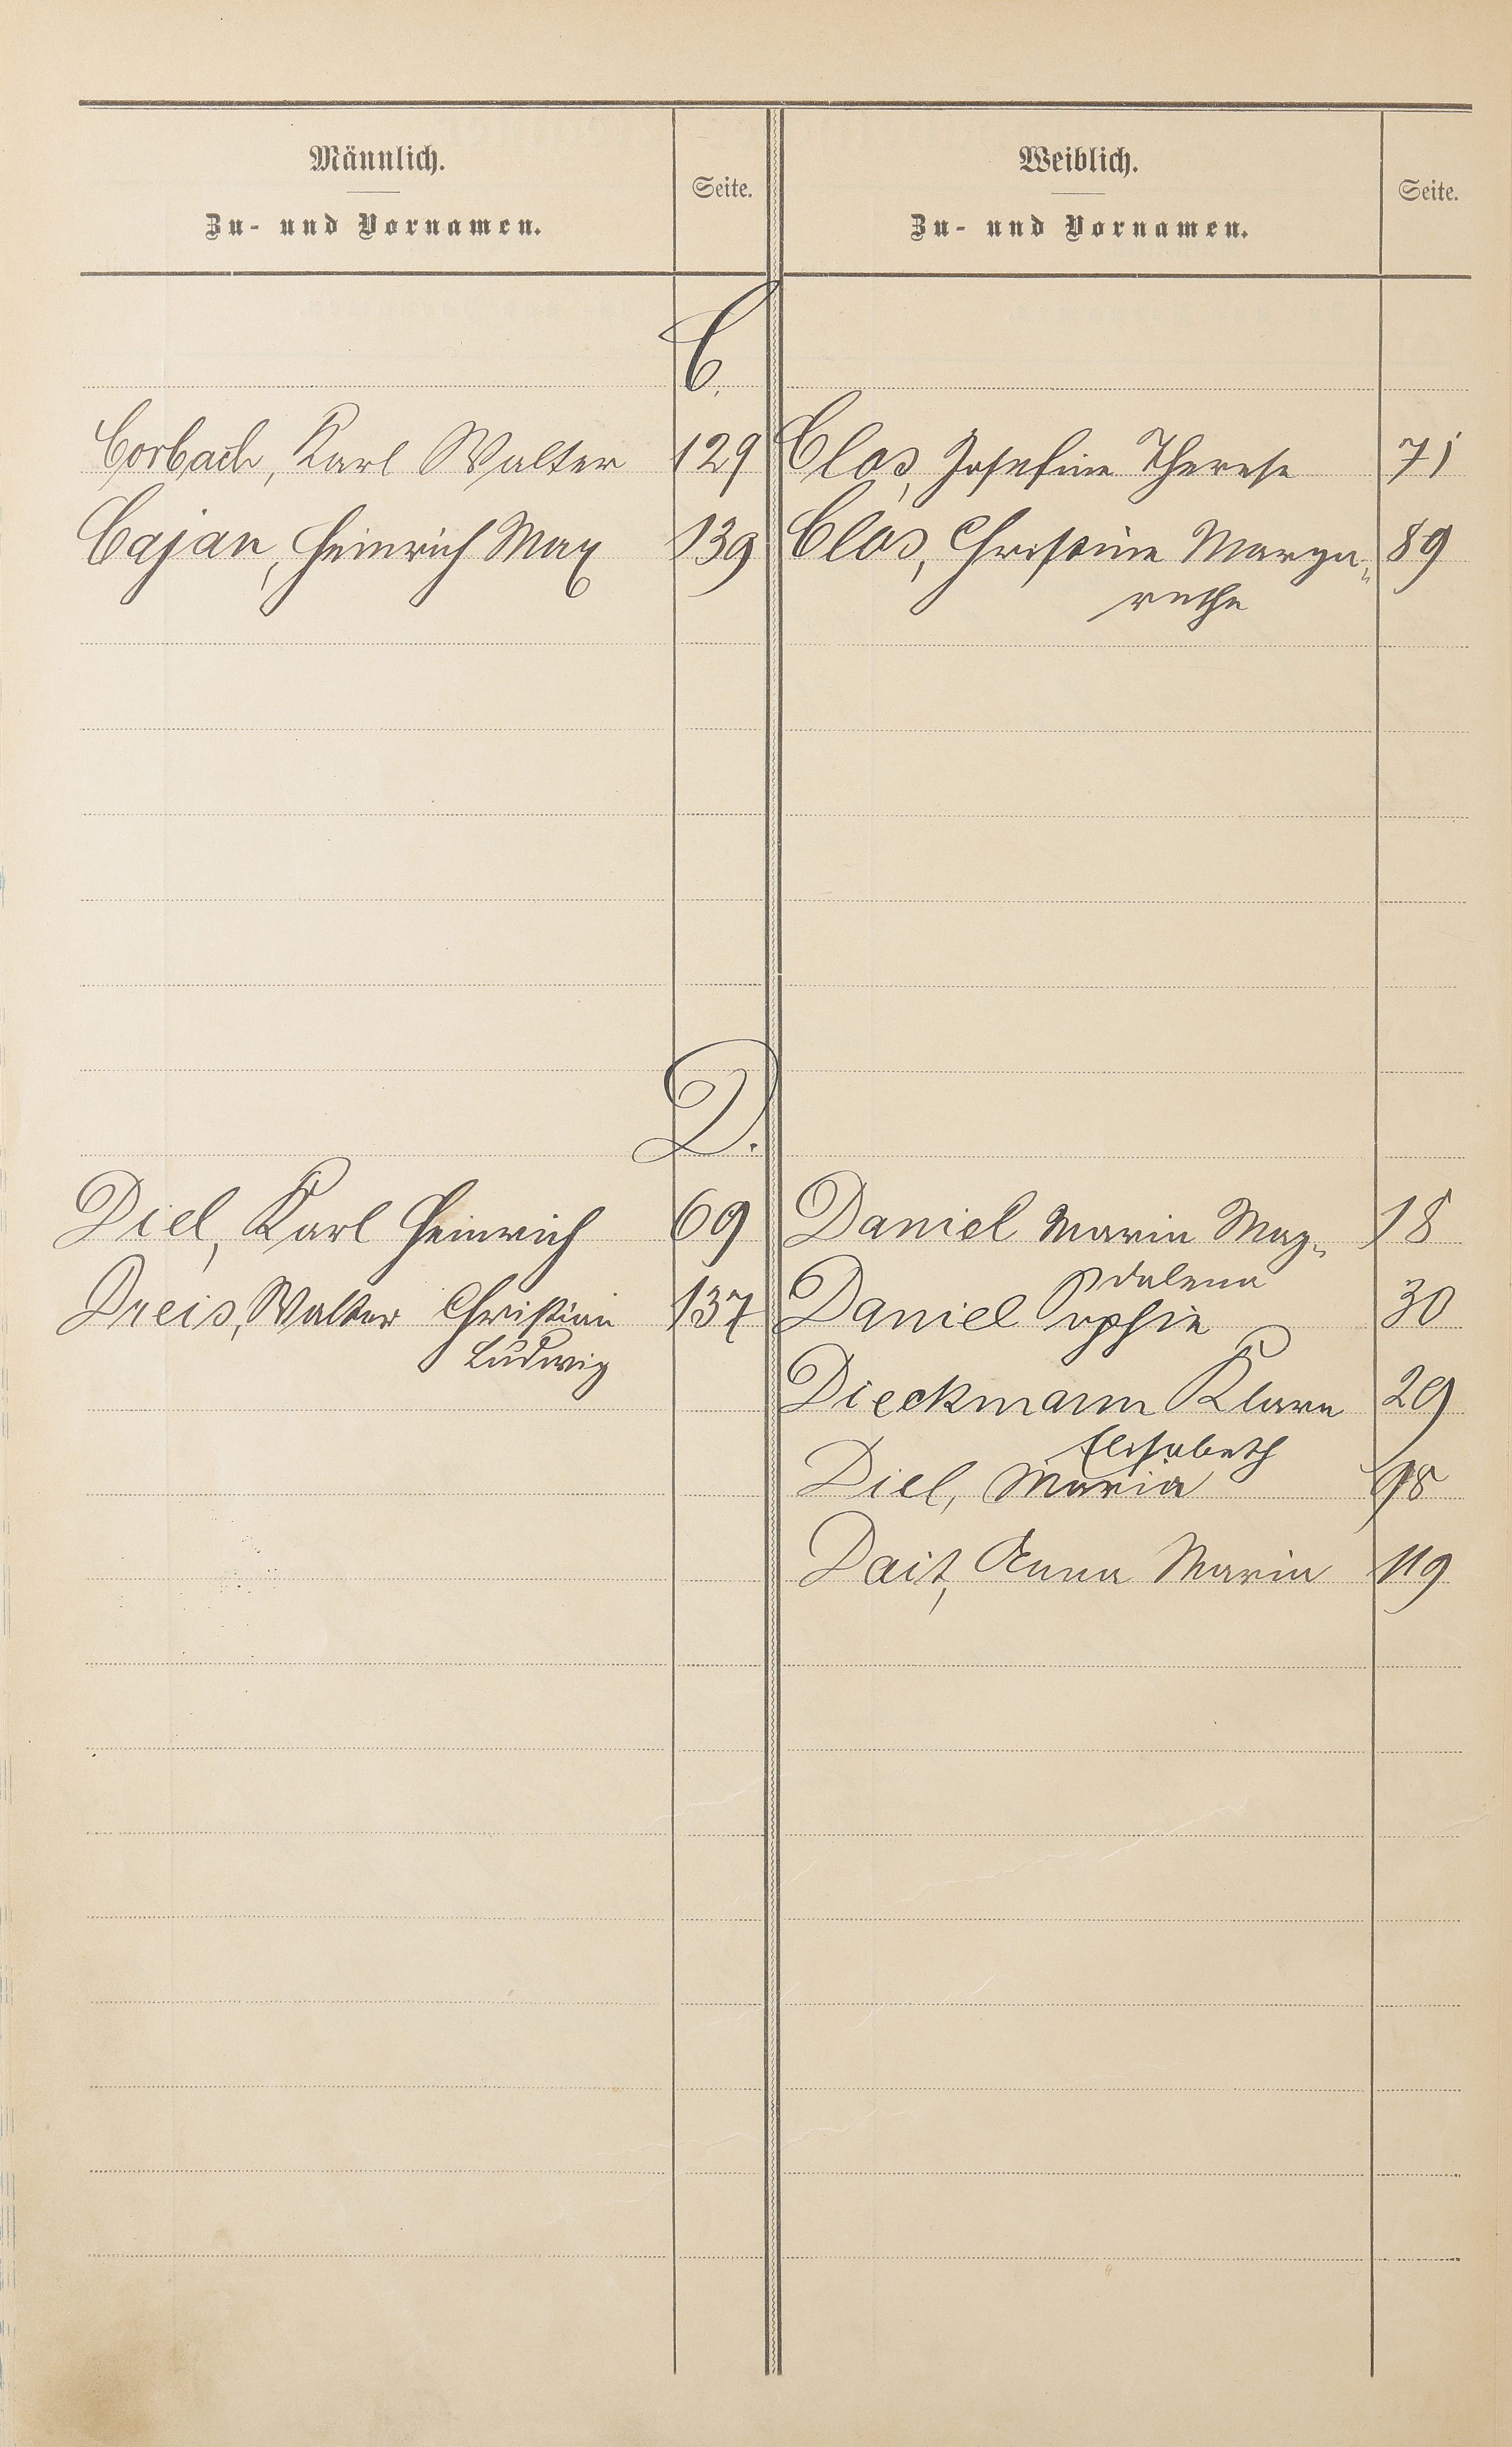 Männlich.
Zu- und Vornamen.
Seite.
Weiblich.
Zu- und Vornamen.
Seite.
C.
Corbach, Karl Walter 129
Clos, Josefine Therese 71
Cajan, Heinrich Max 139
Clos, Christine Marga- 89
rethe
D.
Diel, Karl Heinrich 69
Daniel Maria Mag- 18
dalena
Dreis, Walter Christian 137
Ludwig
Daniel Sophie 30
Dieckmann Klara 29
Elisabeth
Diel, Maria 98
Dait, Anna Maria 119